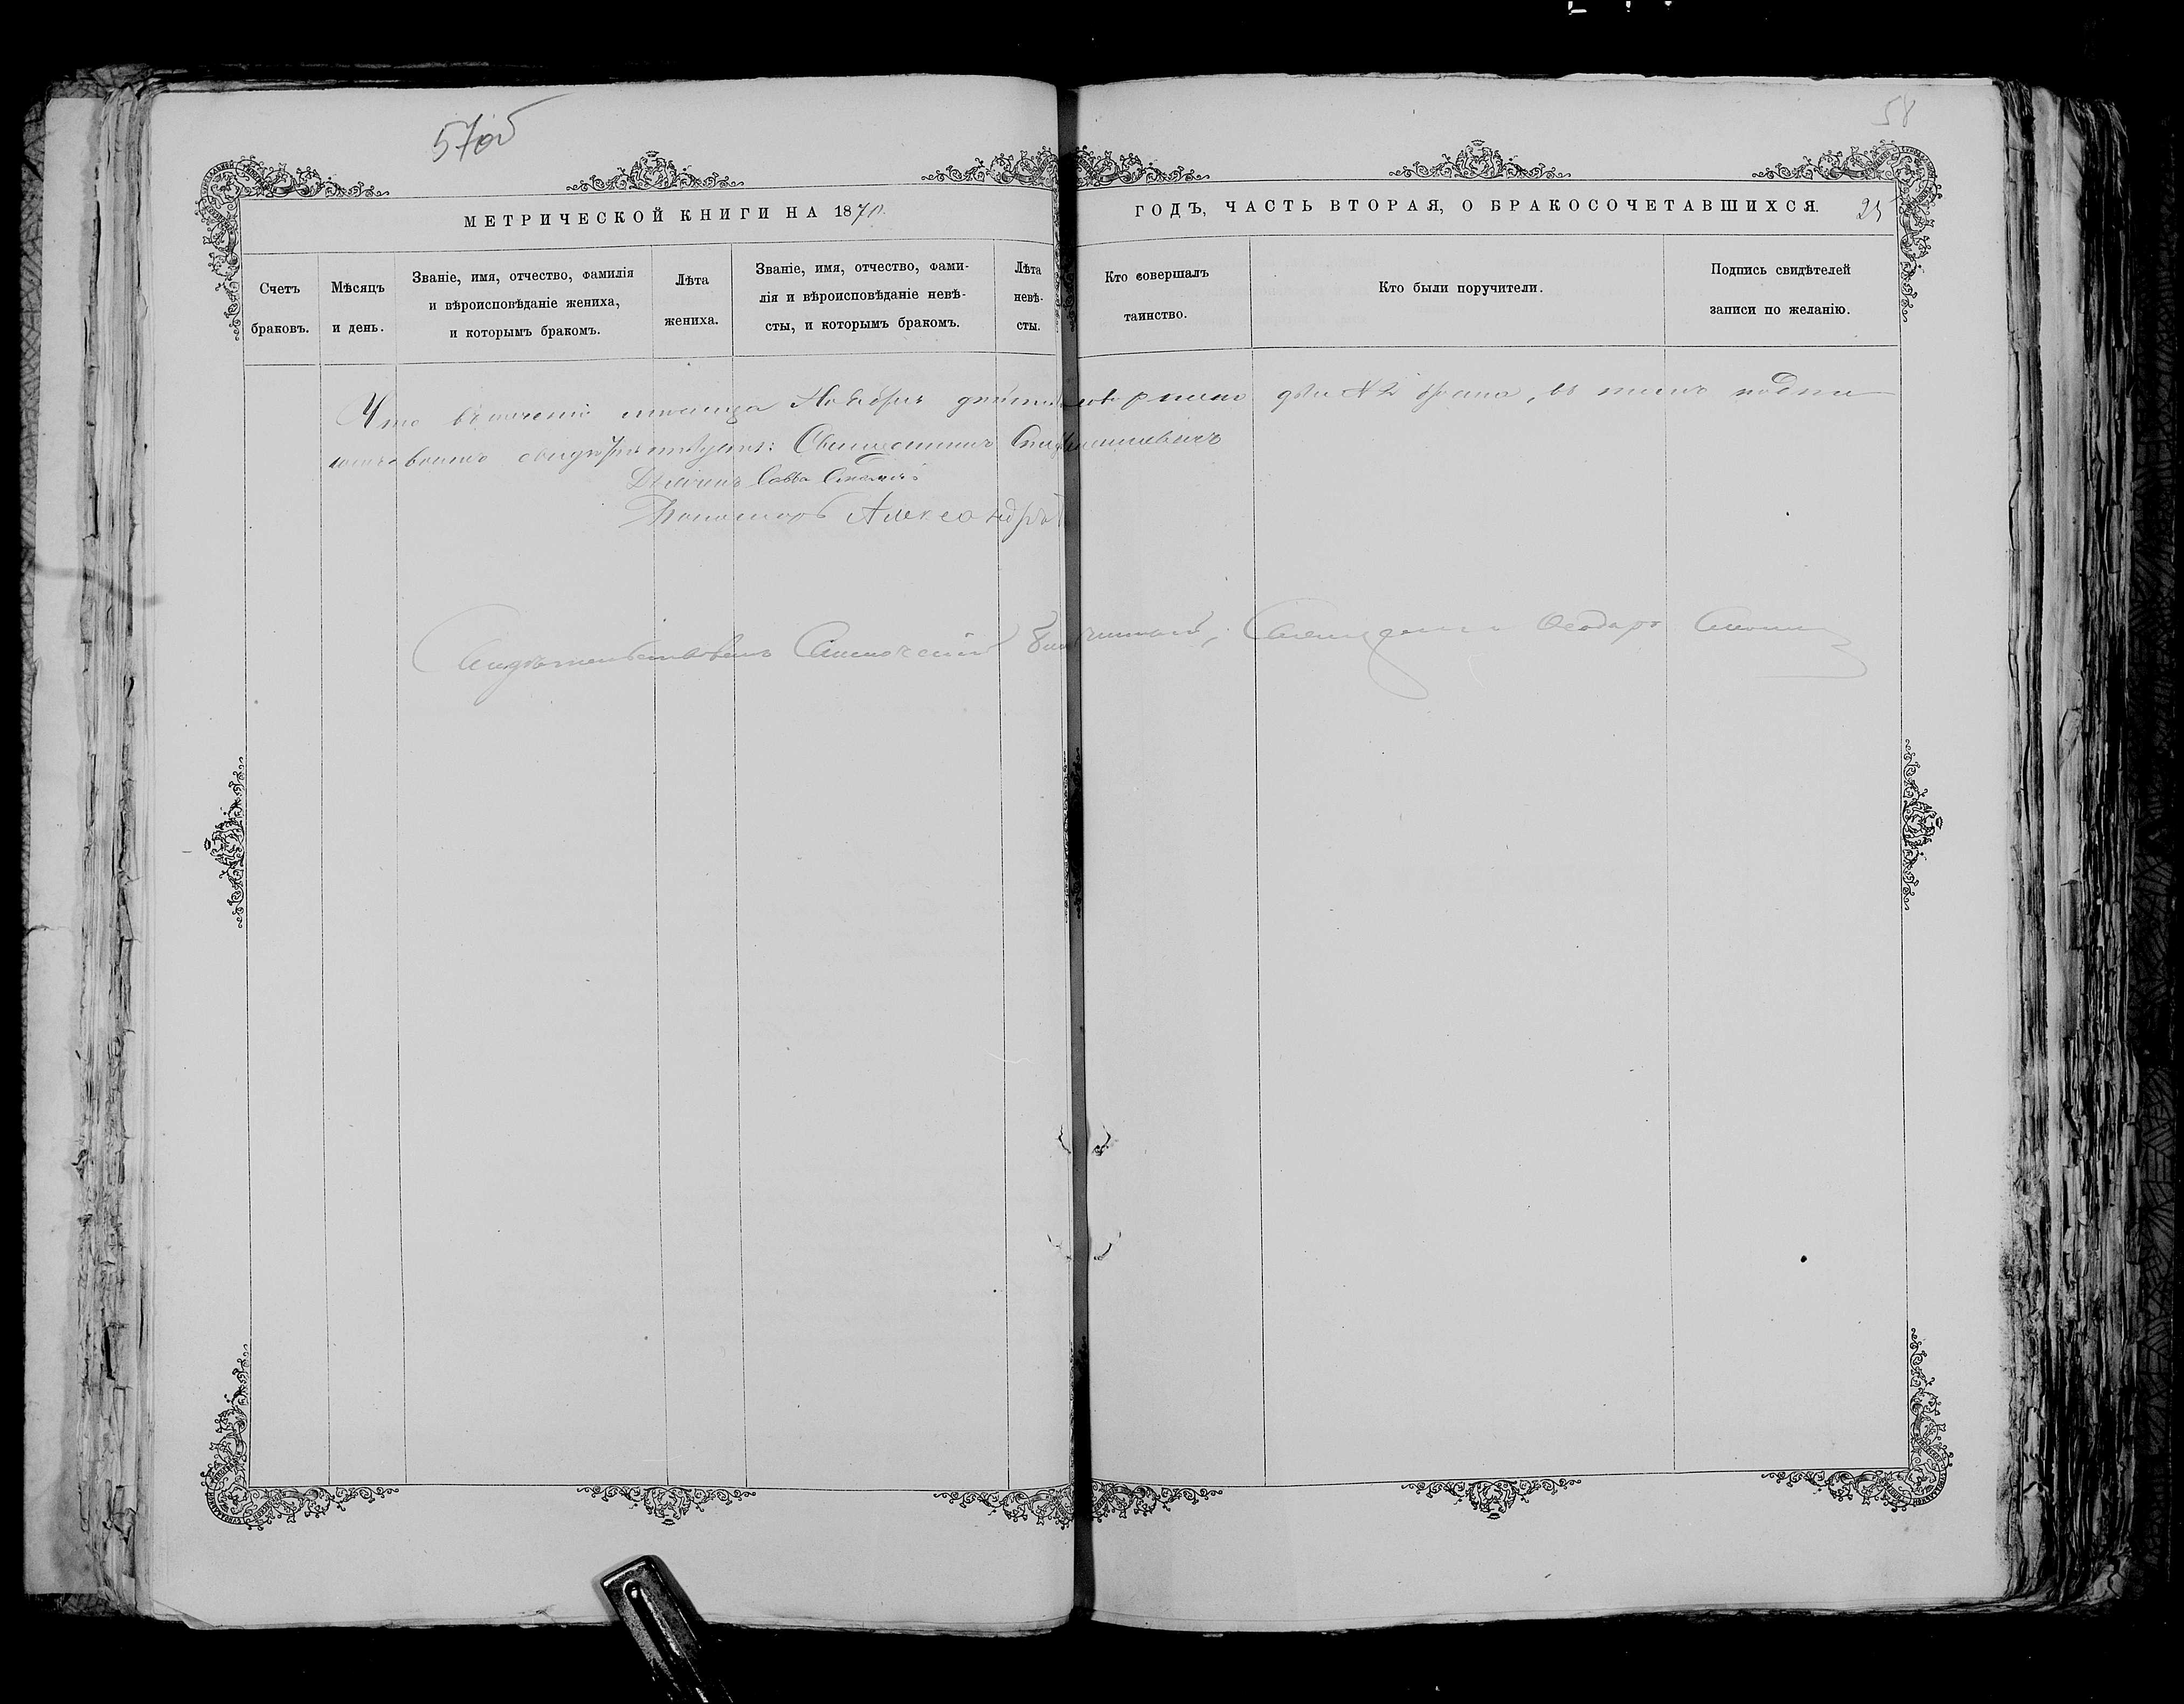 57об
58
МЕТРИЧЕСКОЙ КНИГИ НА 1870. ГОДЪ, ЧАСТЬ ВТОРАЯ, О БРАКОСОЧЕТАВШИХСЯ. 25
Счетъ браковъ.
Мѣсяцъ и день.
Званіе, имя, отчество, фамилія и вѣроисповѣданіе жениха, и которымъ бракомъ.
Лѣта жениха.
Званіе, имя, отчество, фамилія и вѣроисповѣданіе невѣсты, и которымъ бракомъ.
Лѣта невѣсты.
Кто совершалъ таинство.
Кто были поручители.
Подпись свидѣтелей записи по желанію.
Что въ теченіи мѣсяца Ноября совершено два № 2 брака, въ томъ подпи
свидѣтельствуемъ: Священникъ
Дьячокъ Савва
Пономарь Александръ
Свидѣтельствовалъ Благочинный, Священникъ Ѳеодоръ